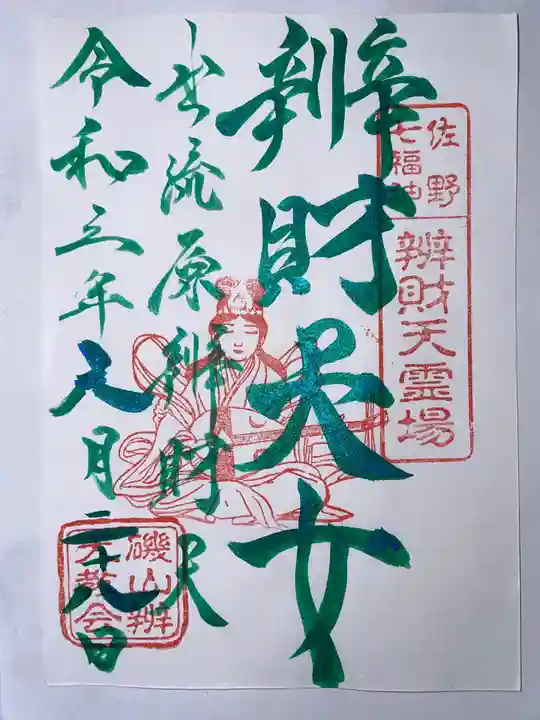 佐野
七福神
辨財天霊場
辨財天女
出流原辨財天
令和三年
月二十八日
磯山辨
天教会